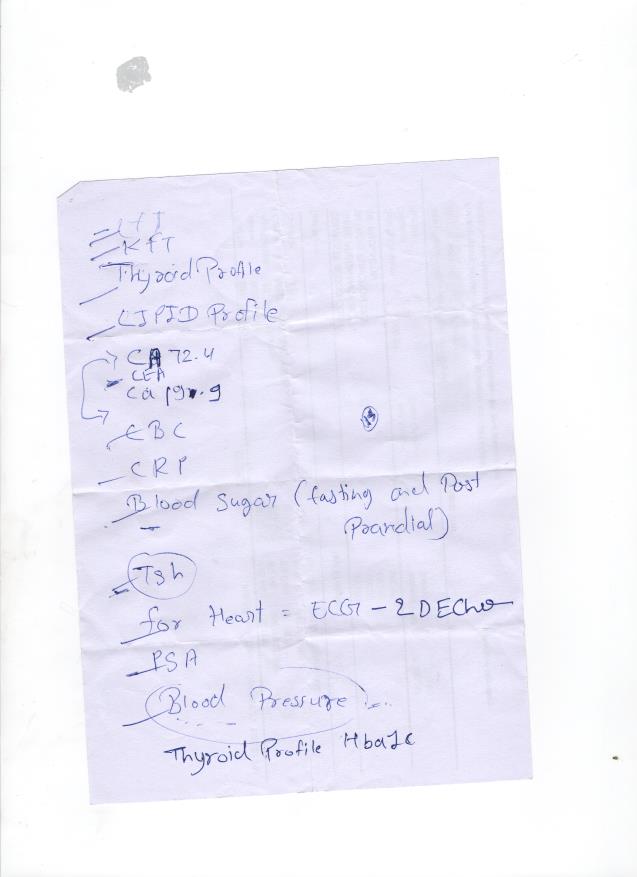 KFT
Thyroid Profile
LIPID Profile
CA 72.4
CEA
Ca 19.9
CBC
CRP
Blood Sugar (fasting and Post
Prandial)
Tsh
for Heart = ECG - 2D Echo
PSA
Blood Pressure
Thyroid Profile Hba1c